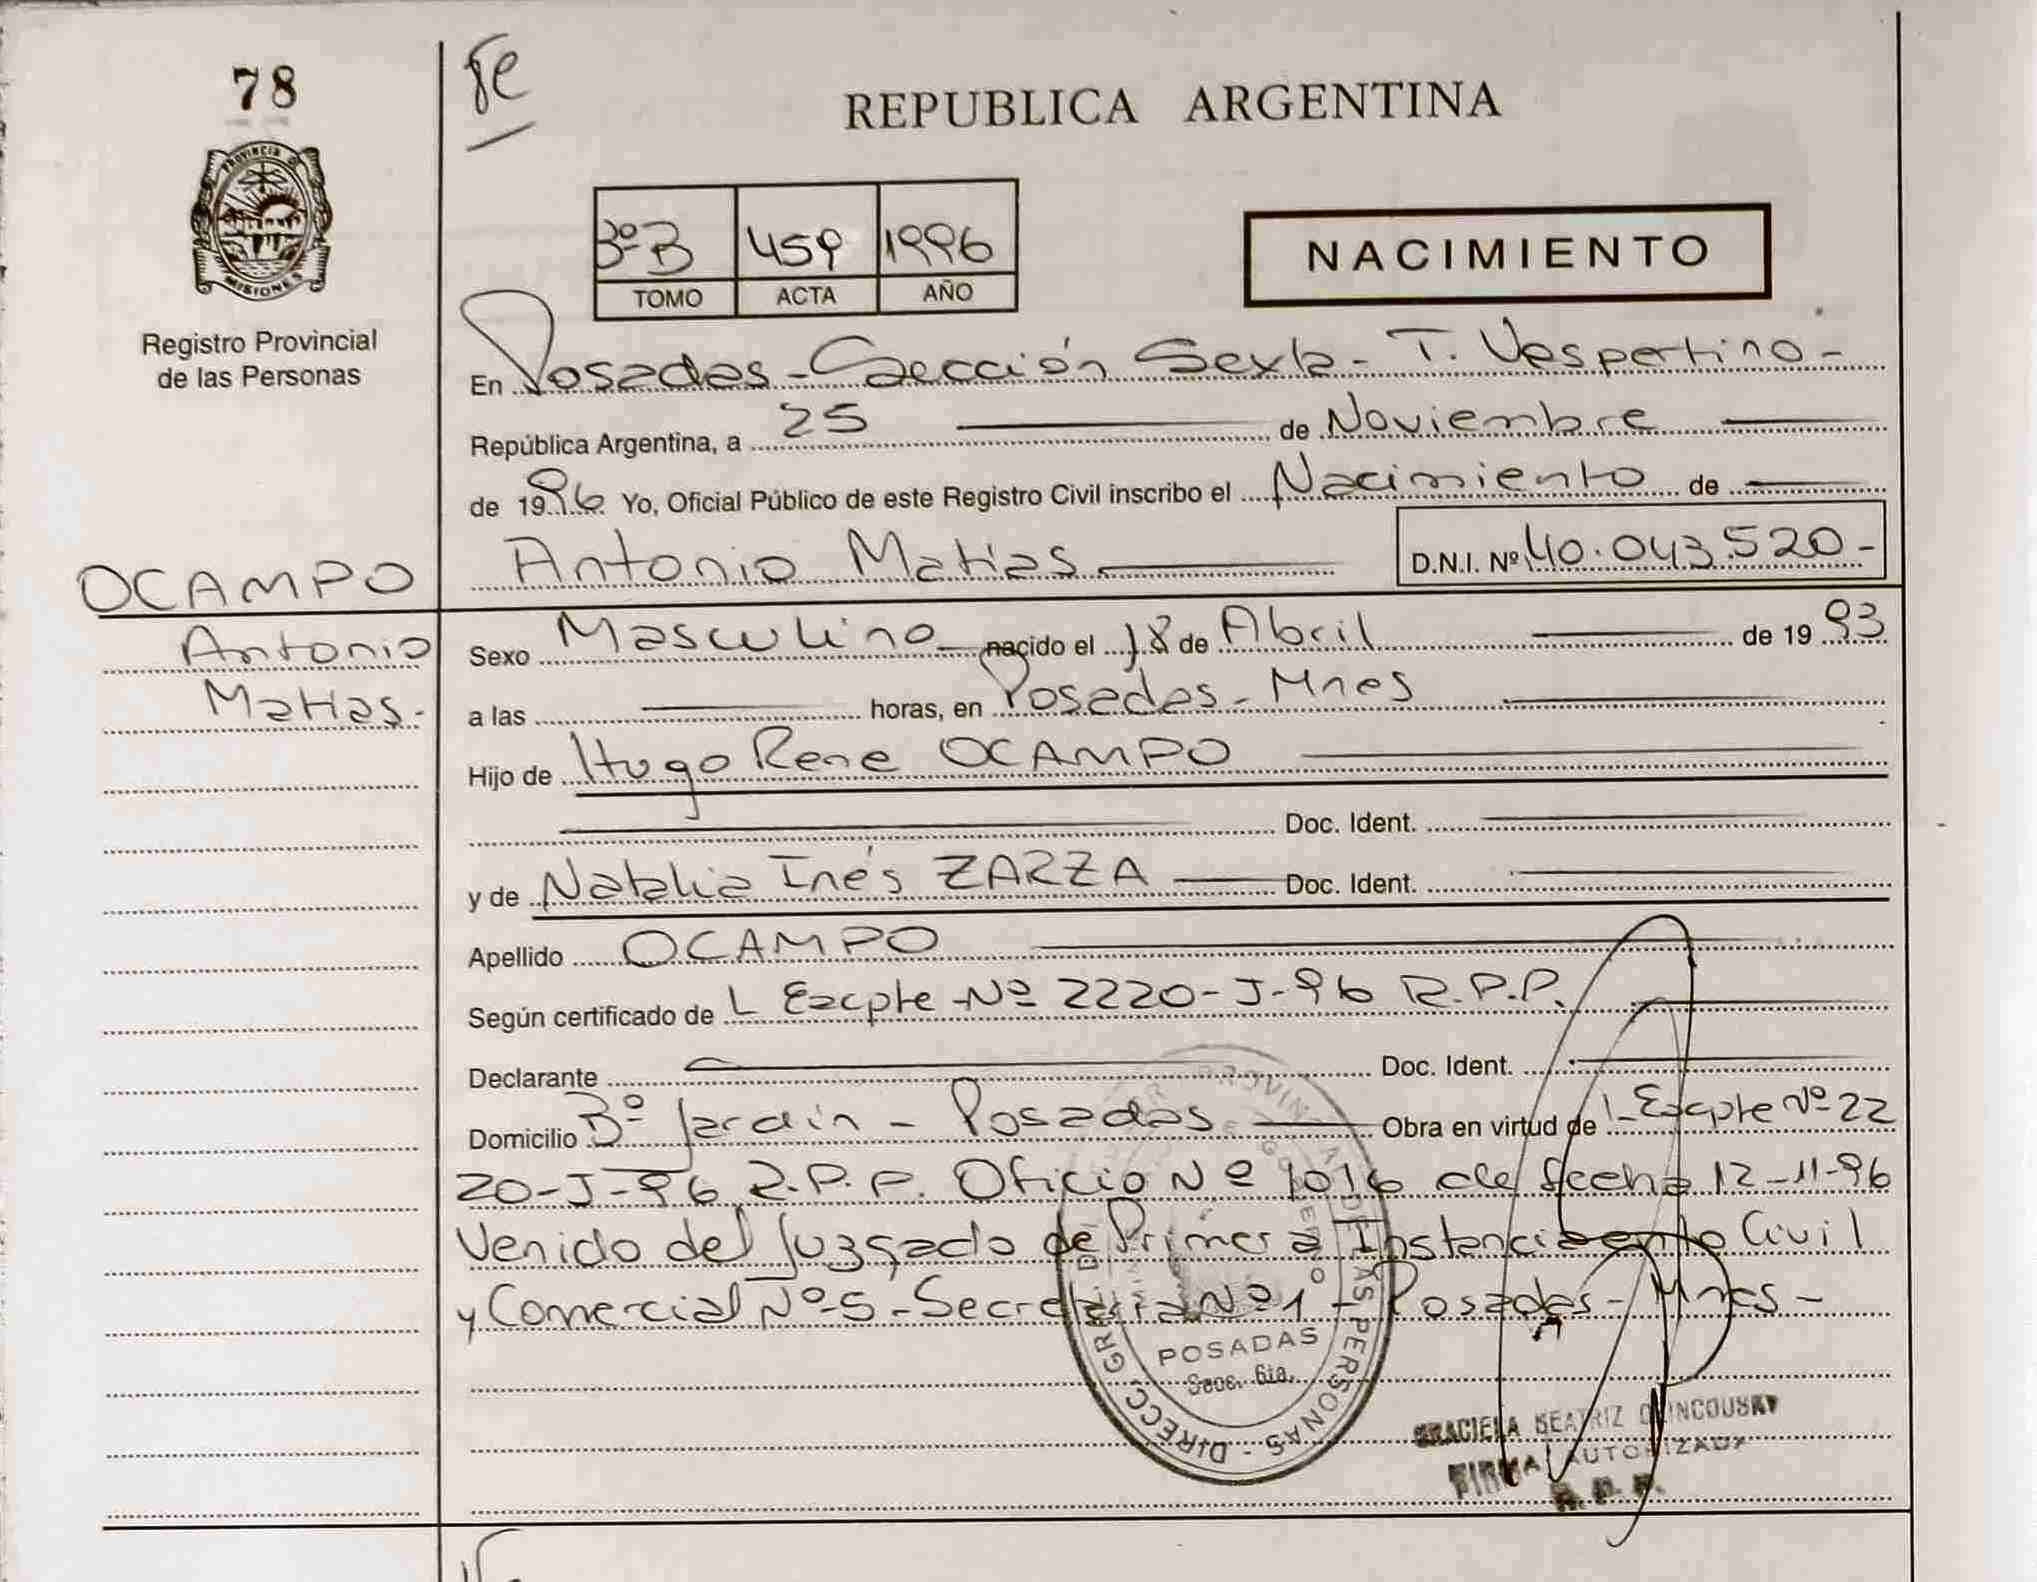 78
fe
REPUBLICA ARGENTINA
PROVINCIA D
MISIONES
Registro Provincial
de las Personas
3º B 459 1996
TOMO ACTA AÑO
NACIMIENTO
En Posadas - Sección Sexta - T. Vespertino -
República Argentina, a 25 de Noviembre
de 1996 Yo, Oficial Público de este Registro Civil inscribo el Nacimiento de
Antonio Matias D.N.I. Nº 40.043.520-
OCAMPO
Antonio
Matias-
Sexo Masculino nacido el 18 de Abril de 19 93
a las horas, en Posadas - Mnes
Hijo de Hugo Rene OCAMPO
Doc. Ident.
y de Natalia Inés ZARZA Doc. Ident.
Apellido OCAMPO
Según certificado de L Excpte Nº 2220-J-96 R.P.P.
Declarante Doc. Ident.
Domicilio Bº Jardin - Posadas Obra en virtud de L Excpte Nº 22
20-J-96 R.P.P. Oficio Nº 1016 de fecha 12-11-96
Venido del Juzgado de Primera Instancia en lo Civil
y Comercial Nº 5 - Secretaria Nº 1 - Posadas - Mnes -
DIRECC. GRAL. DE LAS PERSONAS -
POSADAS
Secc. 6ta.
GRACIELA BEATRIZ
FIRMA AUTORIZADA
R. P. P.